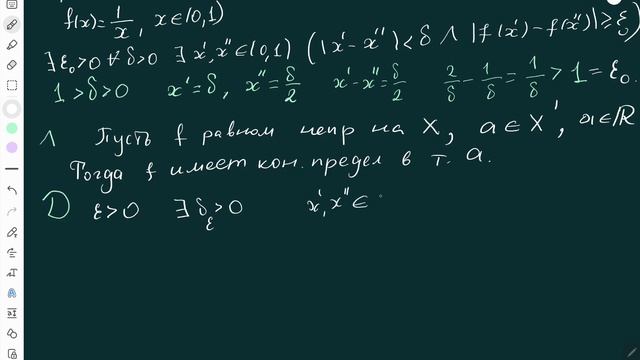 f(x)=1/x, x∈(0,1)
∃ε₀>0 ∀δ>0 ∃x',x''∈(0,1) (|x'-x''|<δ ∧ |f(x')-f(x'')|≥ε₀)
1>δ>0 x'=δ, x''=δ/2 x'-x''=δ/2 2/δ-1/δ=1/δ>1=ε₀
Л Пусть f равном непр на X, a∈X', a∈ℝ
Тогда f имеет кон. предел в т. a.
D ε>0 ∃δ_ε>0 x',x''∈